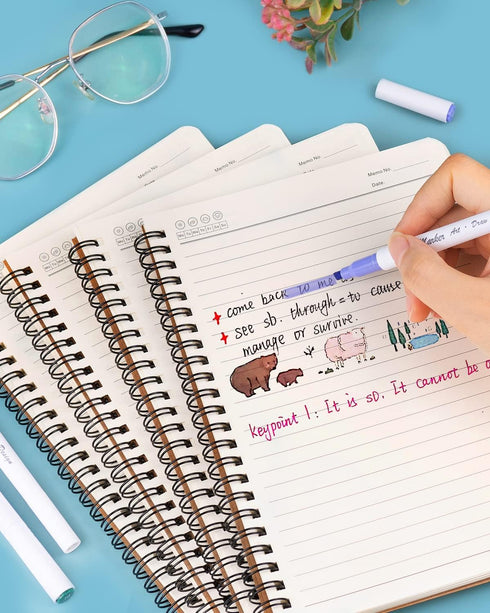 Memo No.
Memo No.
Memo No.
Memo No.
Date.
Marker Art . Draw
come back to me
see sb. through = to cause
manage or survive.
Keypoint 1 : It is so. It cannot be